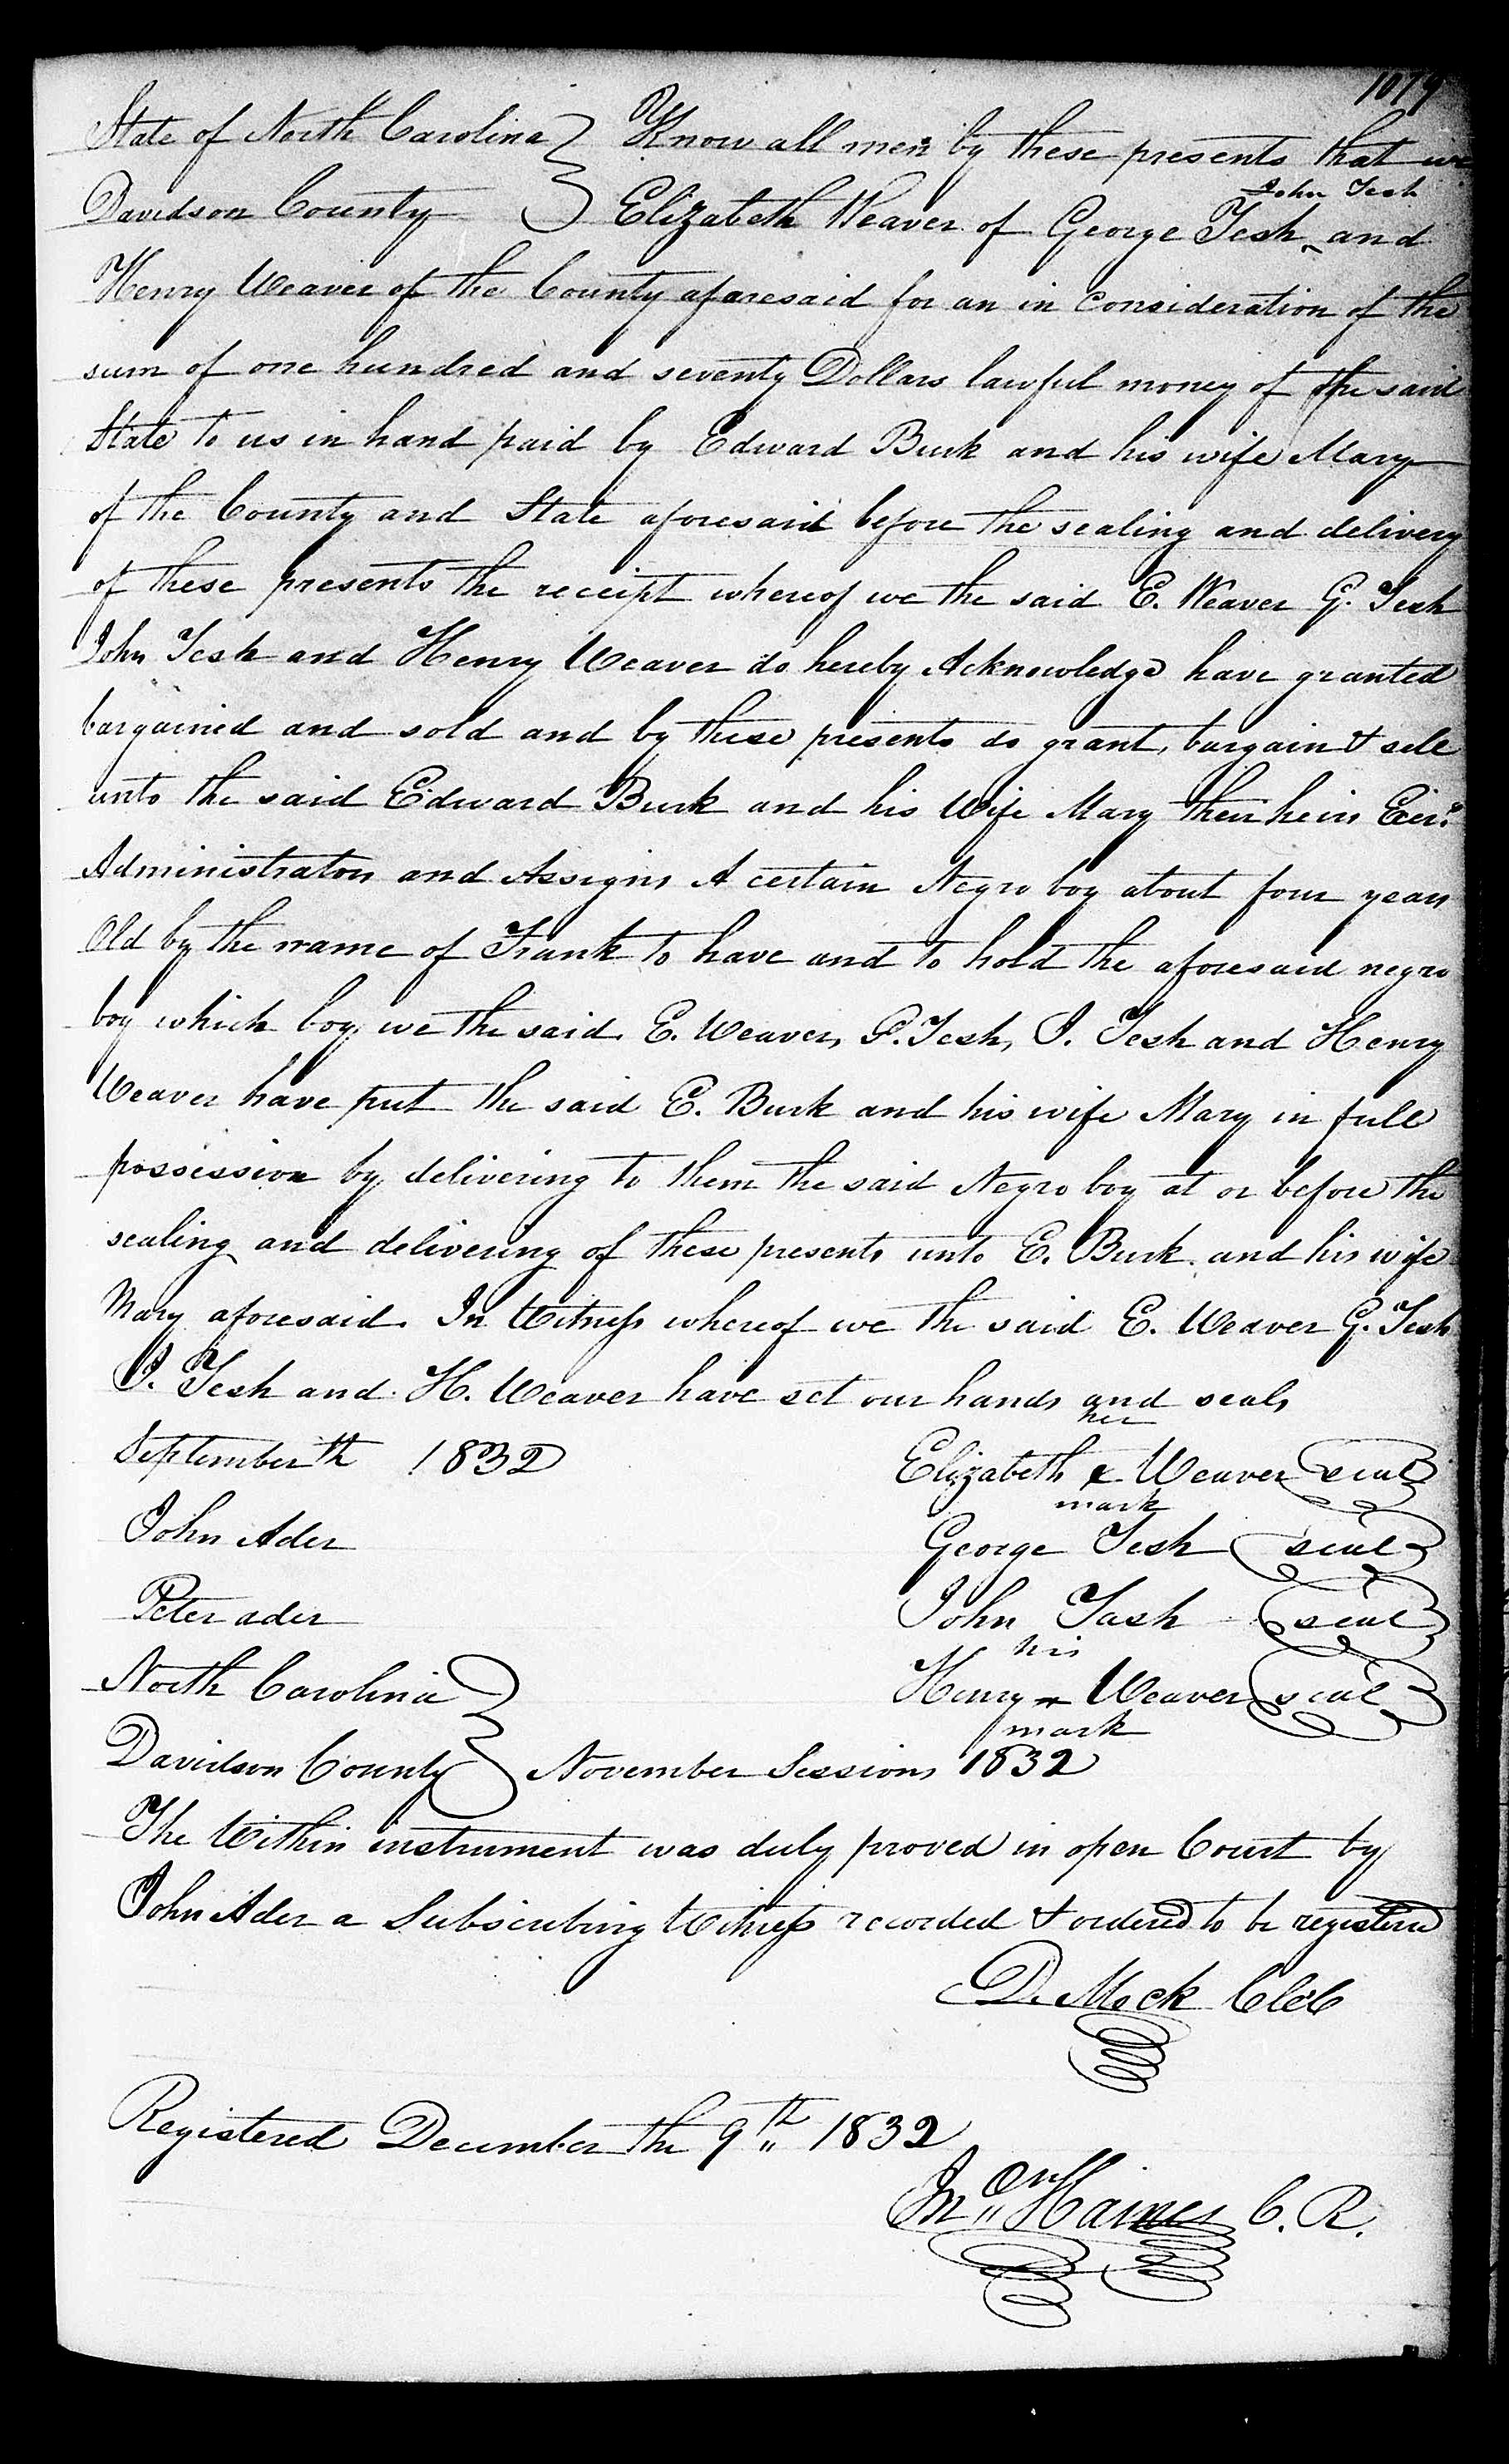 1079
State of North Carolina } Know all men by these presents that we
Davidson County } Elizabeth Weaver of George Tesh ^ John Tesh and
Henry Weaver of the County aforesaid for an in consideration of the
sum of one hundred and seventy Dollars lawful money of the said
State to us in hand paid by Edward Burk and his wife Mary
of the County and State aforesaid before the sealing and delivery
of these presents the receipt whereof we the said E. Weaver G. Tesh
John Tesh and Henry Weaver do hereby Acknowledge have granted
bargained and sold and by these presents do grant, bargain & sell
unto the said Edward Burk and his Wife Mary their heirs Exrs
Administrators and Assigns A certain Negro boy about four years
Old by the name of Frank to have and to hold the aforesaid negro
boy which boy we the said E. Weaver, G. Tesh, J. Tesh and Henry
Weaver have put the said E. Burk and his wife Mary in full
possession by delivering to them the said Negro boy at or before the
sealing and delivering of these presents unto E. Burk and his wife
Mary aforesaid. In Witness whereof we the said E. Weaver G. Tesh
J. Tesh and H. Weaver have set our hands and seals
September th 1832 Elizabeth her x mark Weaver seal
John Ader George Tesh seal
Peter ader John Tash seal
North Carolina } Henry his x mark Weaver seal
Davidson County } November Sessions 1832
The Within instrument was duly proved in open Court by
John Ader a Subscribing Witness recorded & ordered to be registered
D. Mock ClkC
Registered December the 9th 1832
Jno Haines C. R.